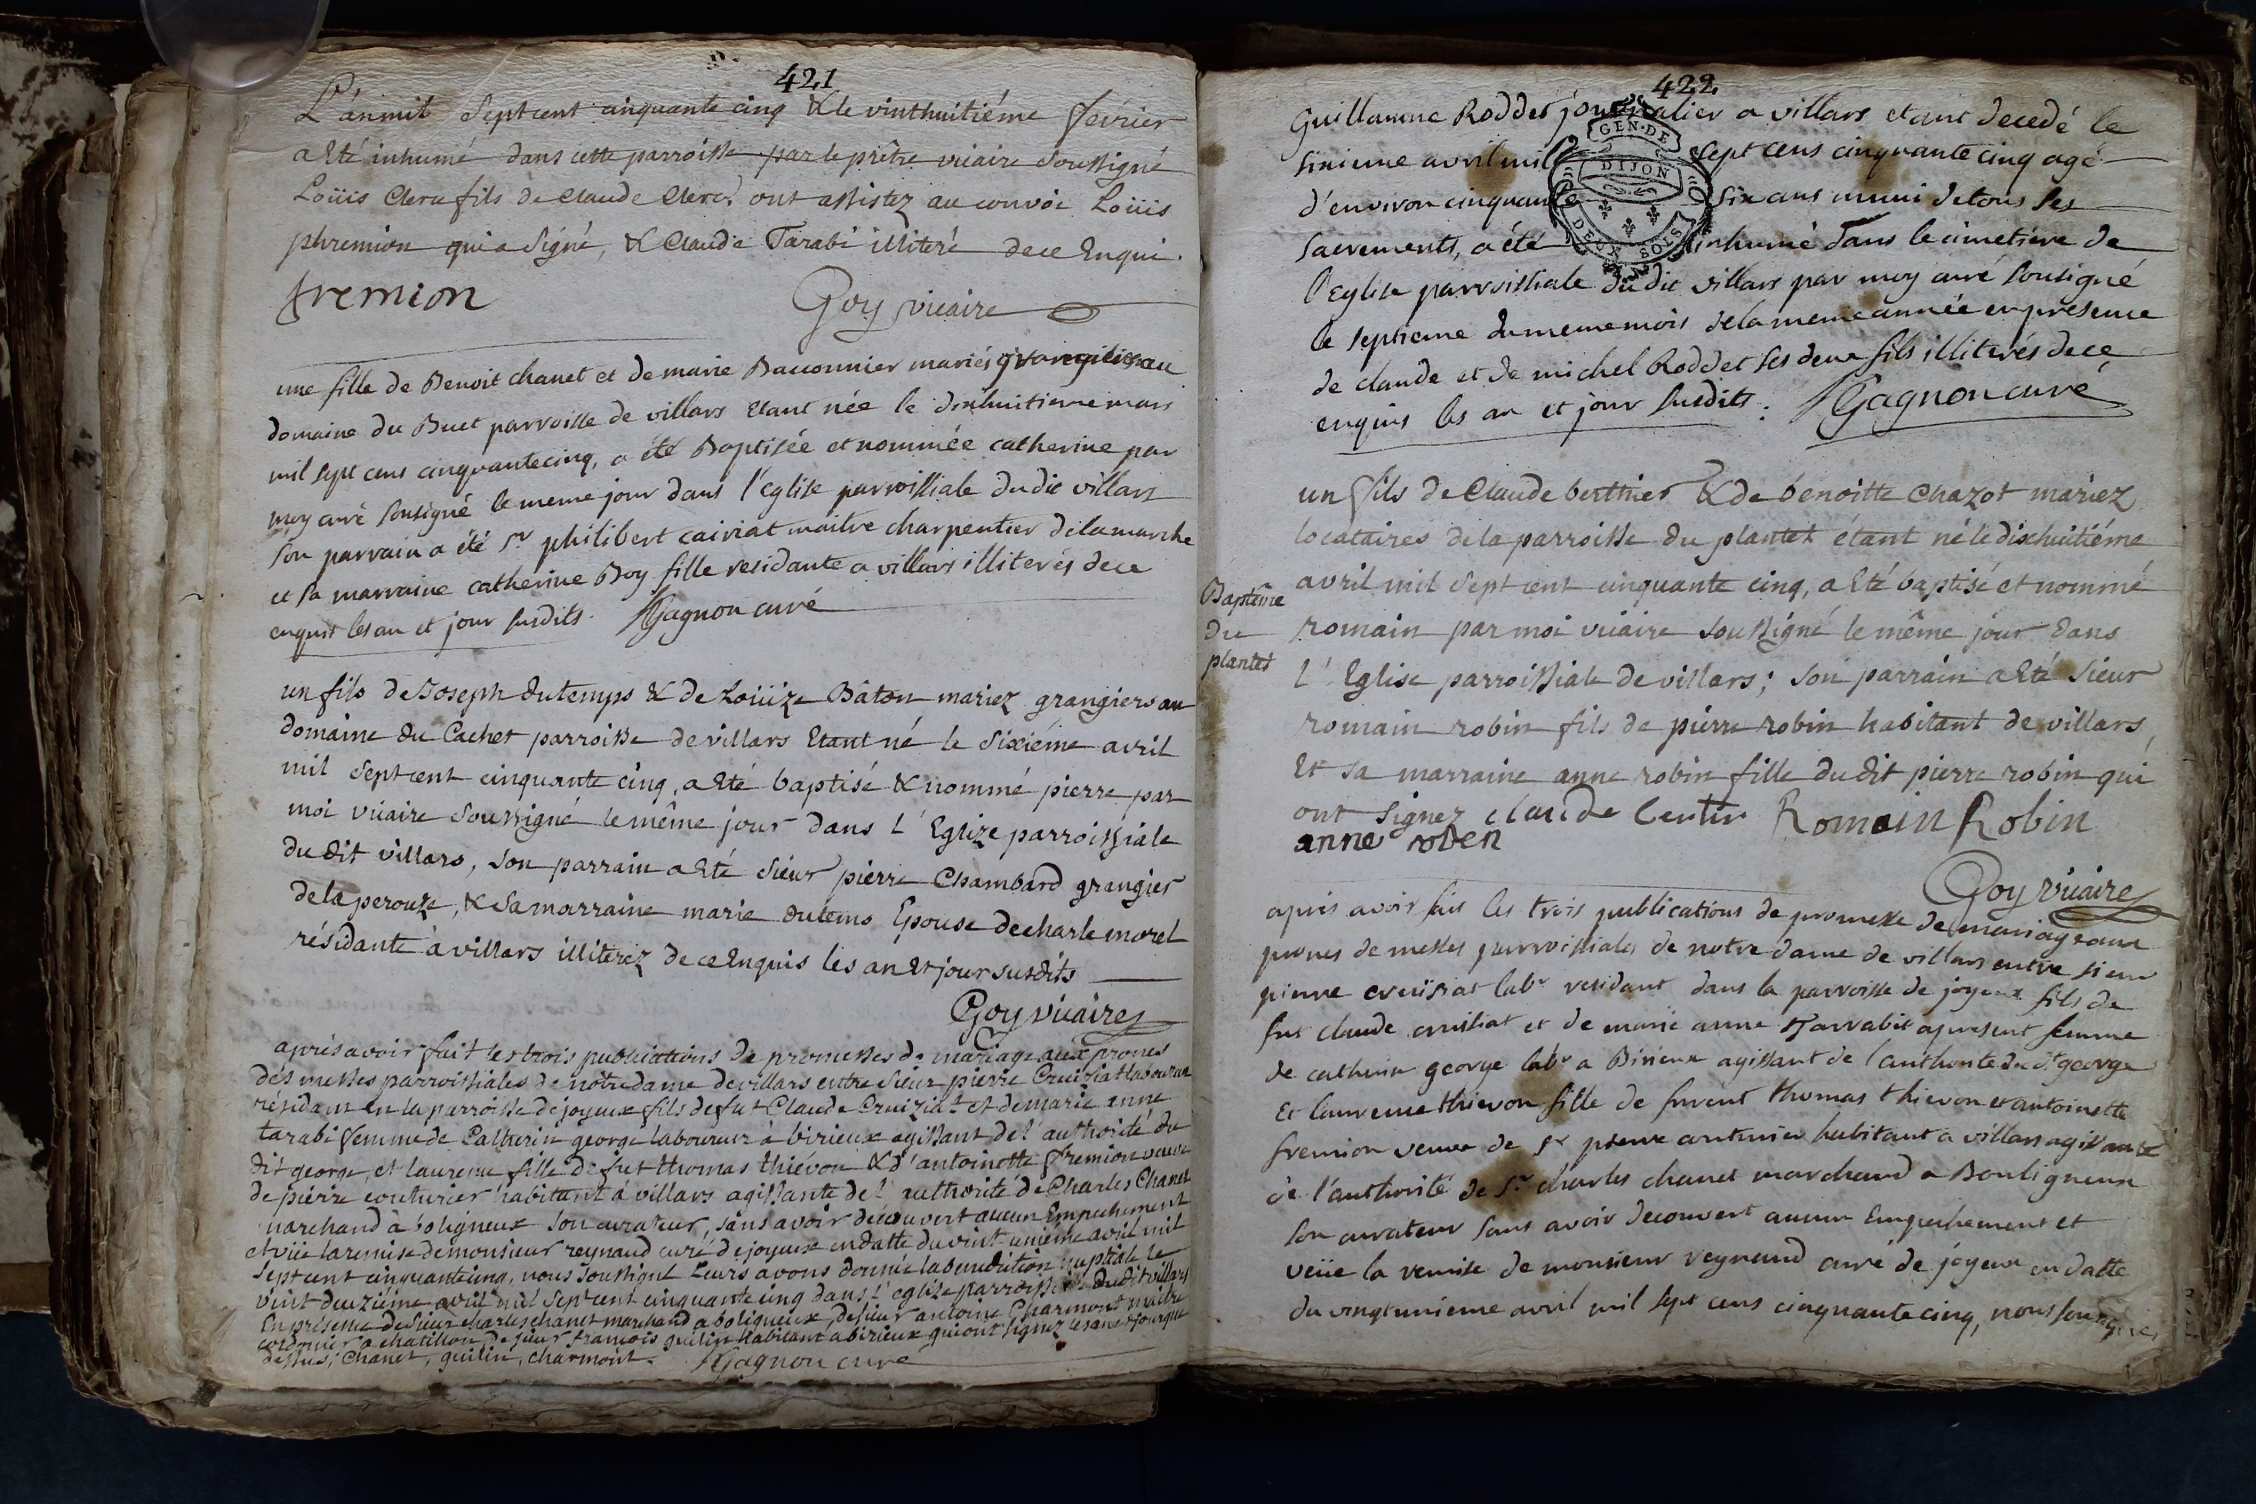 421
L'an mil sept cent cinquante cinq & le vinthuitiéme fevrier
a Eté inhumé dans cette parroisse par le prêtre vicaire soussigné
Loüis Clerc fils de Claude Clerc. ont assistez au convoi Loüis
phremion qui a signé, & Claude Tarabi illiteré de ce Enqui.
fremion Goy vicaire
une fille de Benoit chanet et de marie Bacconnier mariés grangiers au
domaine du Buet parroisse de villars Etant née le dixhuitieme mars
mil sept cens cinquantecinq, a été Baptisée et nommée catherine par
moy curé sousigné le meme jour dans l'eglise parroissiale du dit villars
son parrain a été sr philibert cairiat maitre charpentier de la marche
et sa marraine catherine Boy fille residante a villars illiterés de ce
enquis les an et jour susdits. Gagnon curé
un fils de Joseph dutemps & de Loüize Bâton mariez grangiers au
domaine du Cachet parroisse de villars Etant né le Sixiéme avril
mil sept cent cinquante cinq, a Eté baptisé & nommé pierre par
moi vicaire soussigné le même jour dans L'Eglize parroissiale
du dit villars, son parrain a Eté sieur pierre Chambard grangier
de la perouze, & sa marraine marie dutems Epouse de charle morel
résidante à villars illiterez de ce Enquis les an Et jour susdits
Goy vicaire
aprés avoir fait les trois publications de promesses de mariage aux prones
des messes parroissiales de nôtre dame de villars entre sieur pierre Cruiziat laboureur
résidant en la parroisse de joyeux fils de fut Claude Cruiziat et de marie anne
tarabi femme de Catherin george laboureur à birieux agissant de l'authorité du
dit george, et laurence fille de fut thomas thiévon & d'antoinette fremion veuve
de pierre couturier habitant à villars agissante de l'authorité de Charles Chanet
marchand à boligneux son curateur, sans avoir découvert aucun Empechement
et vüe la remise de monsieur reynaud curé de joyeux en datte du vint-unième avril mil
sept cent cinquantecinq, nous soussigné Leurs avons donné la benediction nuptiale le
vint deuziéme avril mil sept cent cinquante cinq dans l'eglize parroissiale du dit villars
En présence de sieur charles chanet marchand a boligneux, de sieur antoine Charmont maitre
cordonier a chatillon, de sieur françois guilin habitant a birieux qui ont signez les ans & jour que
dessus; Chanet, guilin, charmont. Gagnon curé
422
Guillaume Roddet journalier a villars etant decedé le
sixieme avril mil sept cens cinquante cinq agé
d'environ cinquante six ans muni de tous ses
sacrements, a été inhumé dans le cimetiere de
l'Eglise parroissiale du dit villars par moy curé sousigné
le septieme du meme mois de la meme année en presence
de claude et de michel Roddet ses deux fils illiterés de ce
enquis les an et jour susdits. Gagnon curé
GEN. DE
DIJON
DEUX SOLS
un fils de Claude berthier & de benoitte chazot mariez
locataires de la parroisse du plantet étant né le dixhuitiéme
avril mil sept cent cinquante cinq, a Eté baptisé et nommé
romain par moi vicaire soussigné le même jour dans
L'Eglise parroissiale de villars; son parrain a Eté sieur
romain robin fils de pierre robin habitant de villars,
Et sa marraine anne robin fille du dit pierre robin qui
ont signez claude Romain Robin
anne roben
Goy vicaire
Baptême
du
plantet
apris avoir fait les trois publications de promesse de mariage aux
prones de messes parroissiales de notre dame de villars entre sieur
pierre cruisiat labr residant dans la parroisse de joyeux fils de
fut claude cruisiat et de marie anne Tarrabit apresent femme
de catherin george labr a Birieux agissant de l'authorité du dt george
Et laurence thievon fille de furent thomas thievon et antoinette
fremion veuve de sr pierre couturier habitant a villars agissante
de l'authorité de sr charles chanet marchand a Bouligneux
son curateur sans avoir decouvert aucun Empechement et
veüe la remise de monsieur reynaud curé de joyeux en datte
du vingtunieme avril mil sept cens cinquante cinq, nous sousigné